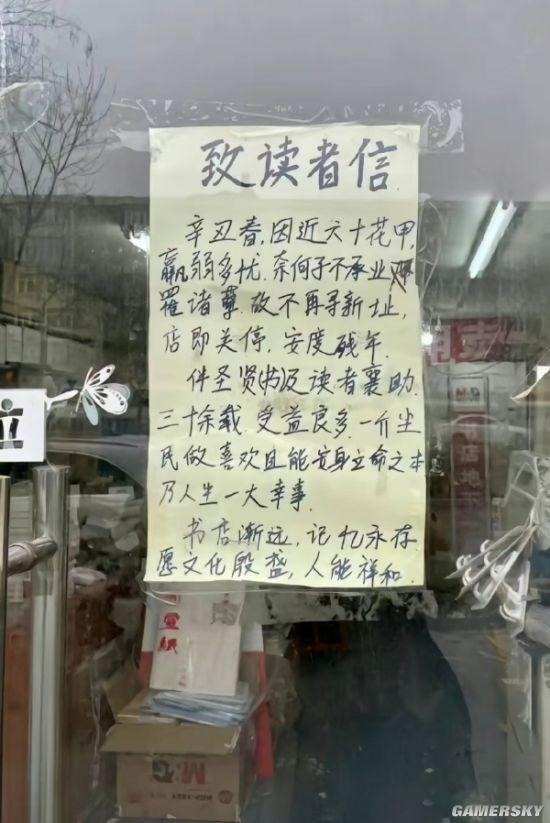 致读者信
辛丑春,因近六十花甲,
羸弱多忧.奈何子不承业
罹诸孽.故不再寻新址,
店即关停,安度残年.
伴圣贤(书)及读者襄助.
三十余载.受益良多.一介尘
民做喜欢且能安身立命之本
乃人生一大幸事.
书店渐远,记忆永存
愿文化殷盛,人能祥和.
立
M&G
店地
宣紙
M&G
GAMERSKY